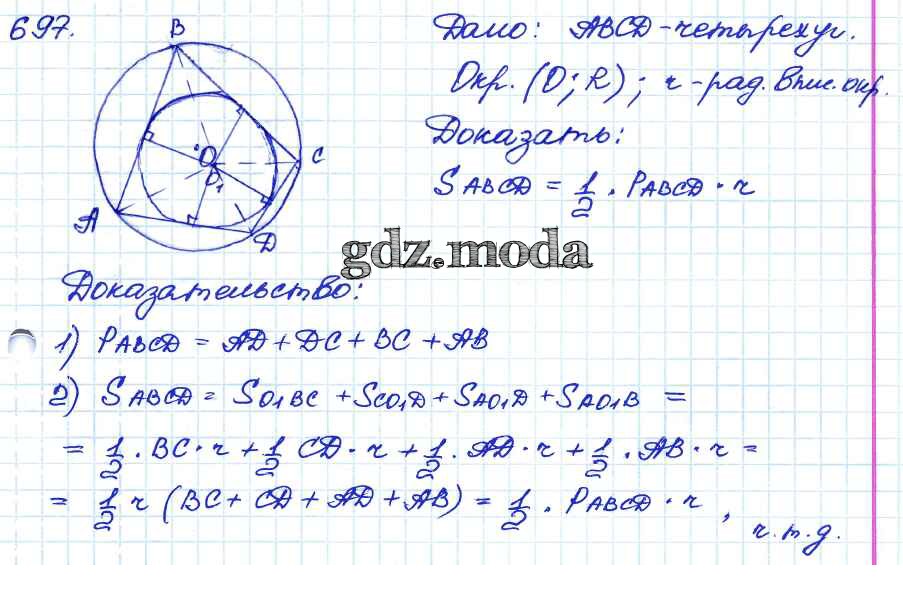 697.
Дано: ABCD-четырехуг.
Окр. (O; R); r-рад. впис. окр.
Доказать:
SABCD = 1/2 · PABCD · r
B
C
O
O1
A
D
gdz.moda
Доказательство:
1) PABCD = AD + DC + BC + AB
2) SABCD = SO1BC + SCO1D + SAO1D + SAO1B =
= 1/2 · BC · r + 1/2 CD · r + 1/2 · AD · r + 1/2 · AB · r =
= 1/2 r (BC + CD + AD + AB) = 1/2 · PABCD · r , ч.т.д.